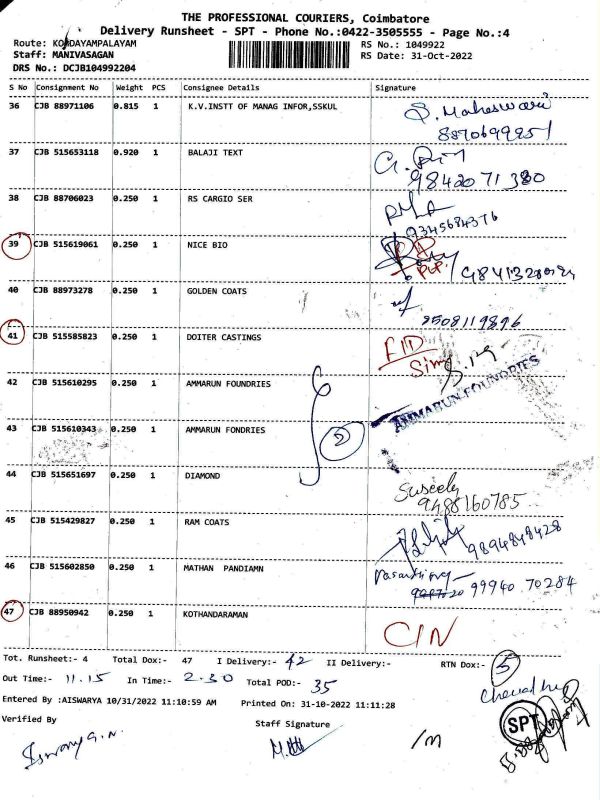 THE PROFESSIONAL COURIERS, Coimbatore
Delivery Runsheet - SPT - Phone No.:0422-3505555 - Page No.:4
Route: KONDAYAMPALAYAM RS No.: 1049922
Staff: MANIVASAGAN RS Date: 31-Oct-2022
DRS No.: DCJB104992204
S No Consignment No Weight PCS Consignee Details Signature
36 CJB 88971106 0.815 1 K.V.INSTT OF MANAG INFOR,SSKUL S. Maheswari
8870699851
37 CJB 515653118 0.920 1 BALAJI TEXT
9842071380
38 CJB 88706023 0.250 1 RS CARGIO SER
9345684376
39 CJB 515619061 0.250 1 NICE BIO
40 CJB 88973278 0.250 1 GOLDEN COATS
9508119896
41 CJB 515585823 0.250 1 DOITER CASTINGS
42 CJB 515610295 0.250 1 AMMARUN FOUNDRIES AMMARUN FOUNDRIES
43 CJB 515610343 0.250 1 AMMARUN FONDRIES 2
44 CJB 515651697 0.250 1 DIAMOND Suseely
9488160785
45 CJB 515429827 0.250 1 RAM COATS 9894848428
46 CJB 515602850 0.250 1 MATHAN PANDIAMN
99940 70284
47 CJB 88950942 0.250 1 KOTHANDARAMAN CIN
Tot. Runsheet:- 4 Total Dox:- 47 I Delivery:- 42 II Delivery:- RTN Dox:- 5
Out Time:- 11.15 In Time:- 2.30 Total POD:- 35
Entered By :AISWARYA 10/31/2022 11:10:59 AM Printed On: 31-10-2022 11:11:28
Verified By Staff Signature SPT